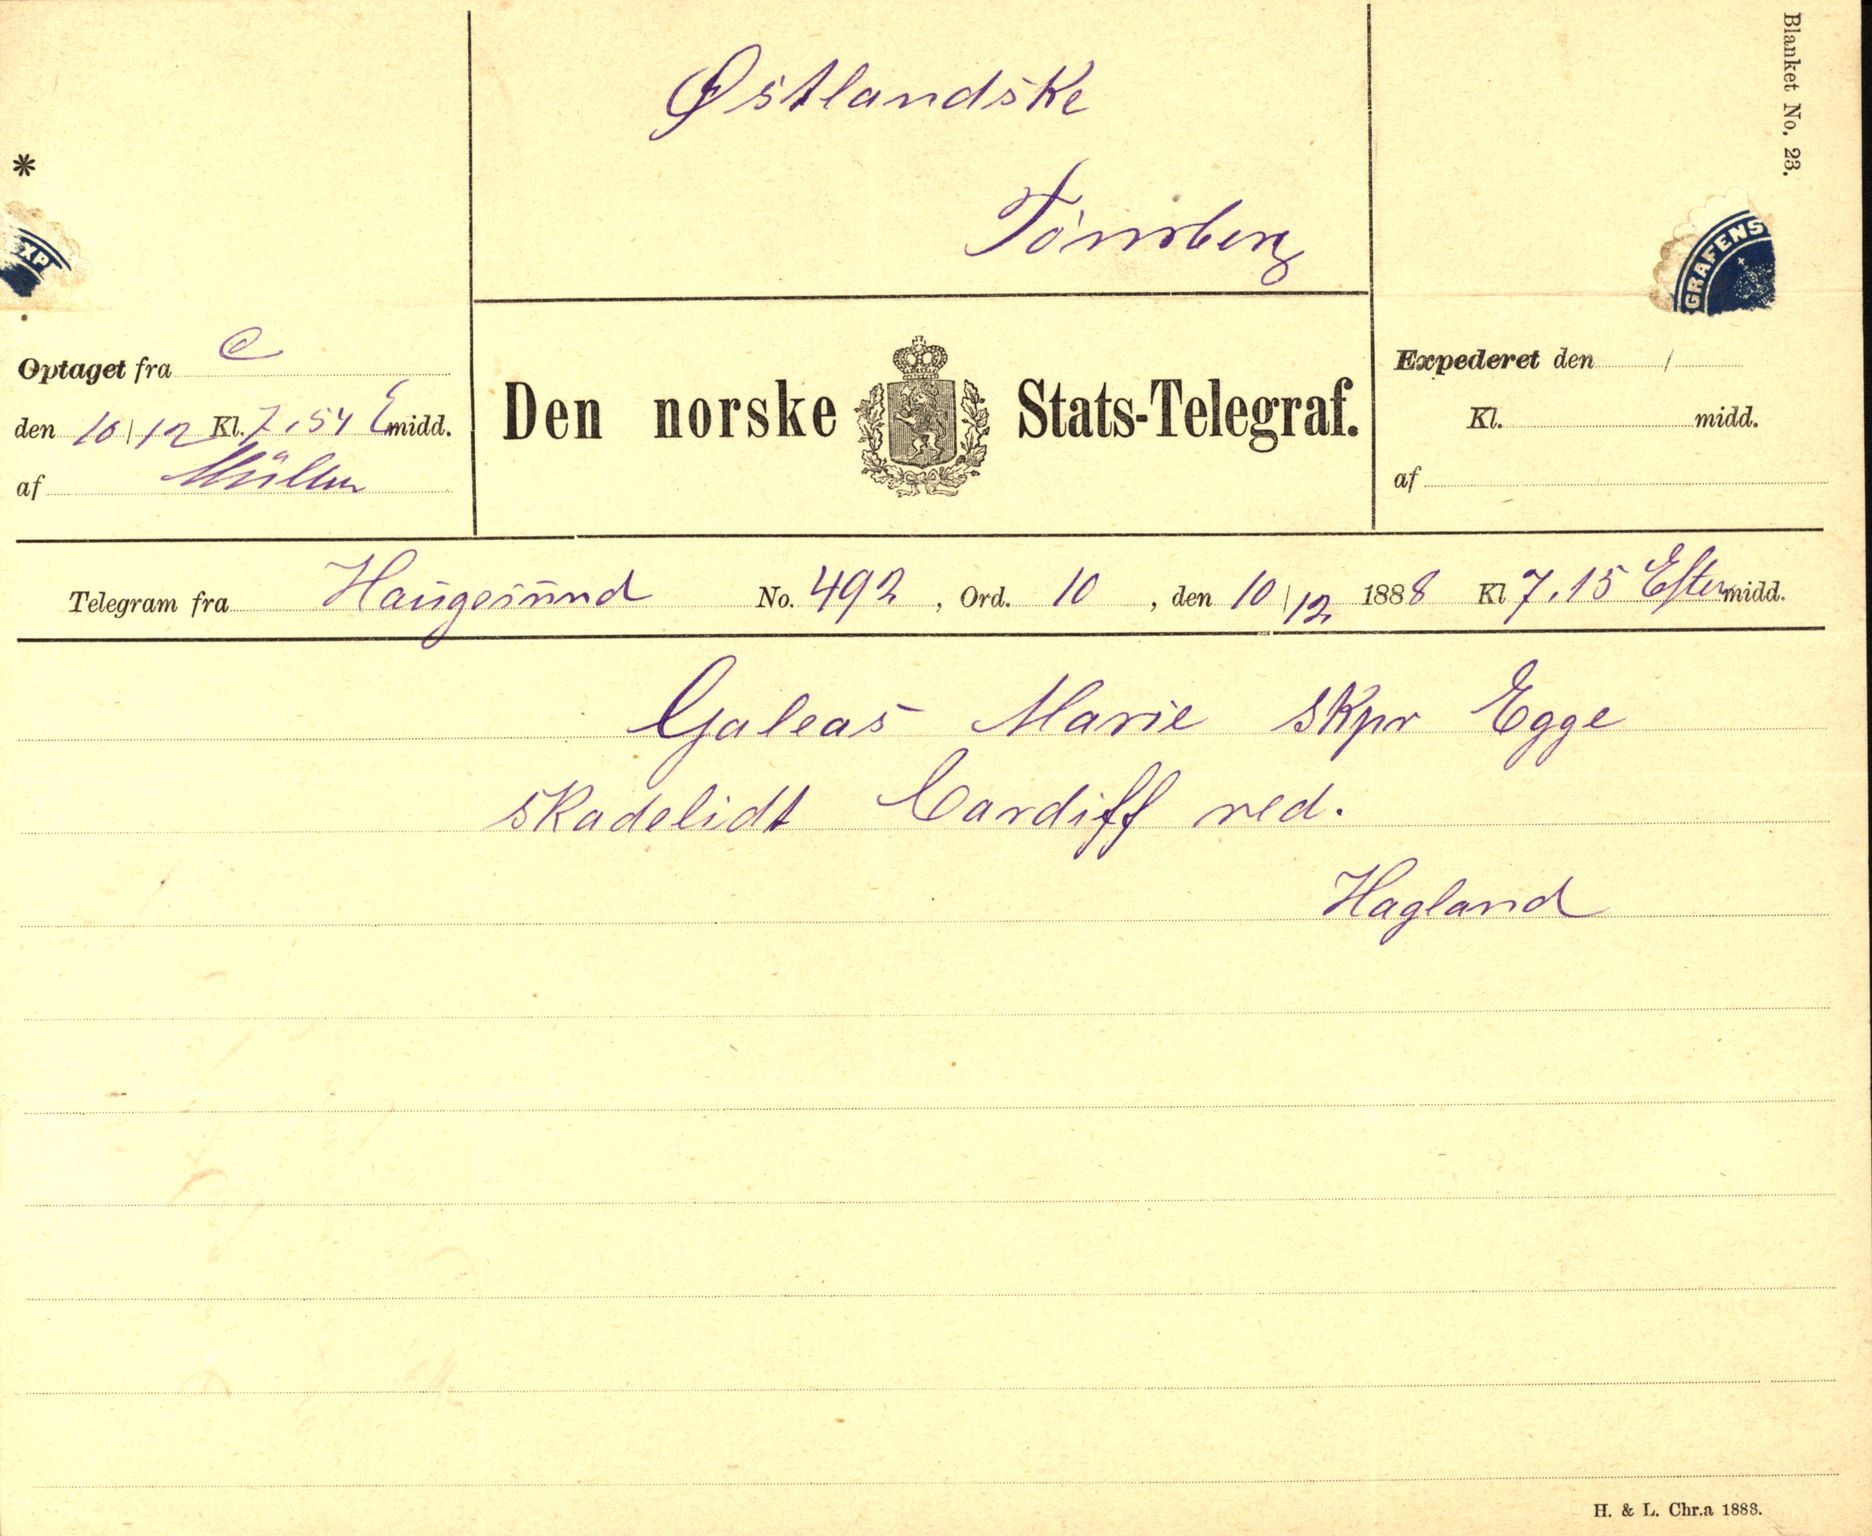 Blanket No. 23.
Østlandske
Tönsberg
*
XP
GRAFENS
Optaget fra C
den 10/12 Kl. 7.54 Emidd.
af Müller
Den norske Stats-Telegraf.
Expederet den /
Kl. midd.
af
Telegram fra Haugesund No. 492, Ord. 10, den 10/12 1888 Kl 7.15 Eftermidd.
Galeas Marie skpr Egge
skadelidt Cardiff red.
Hagland
H. & L. Chr.a 1888.